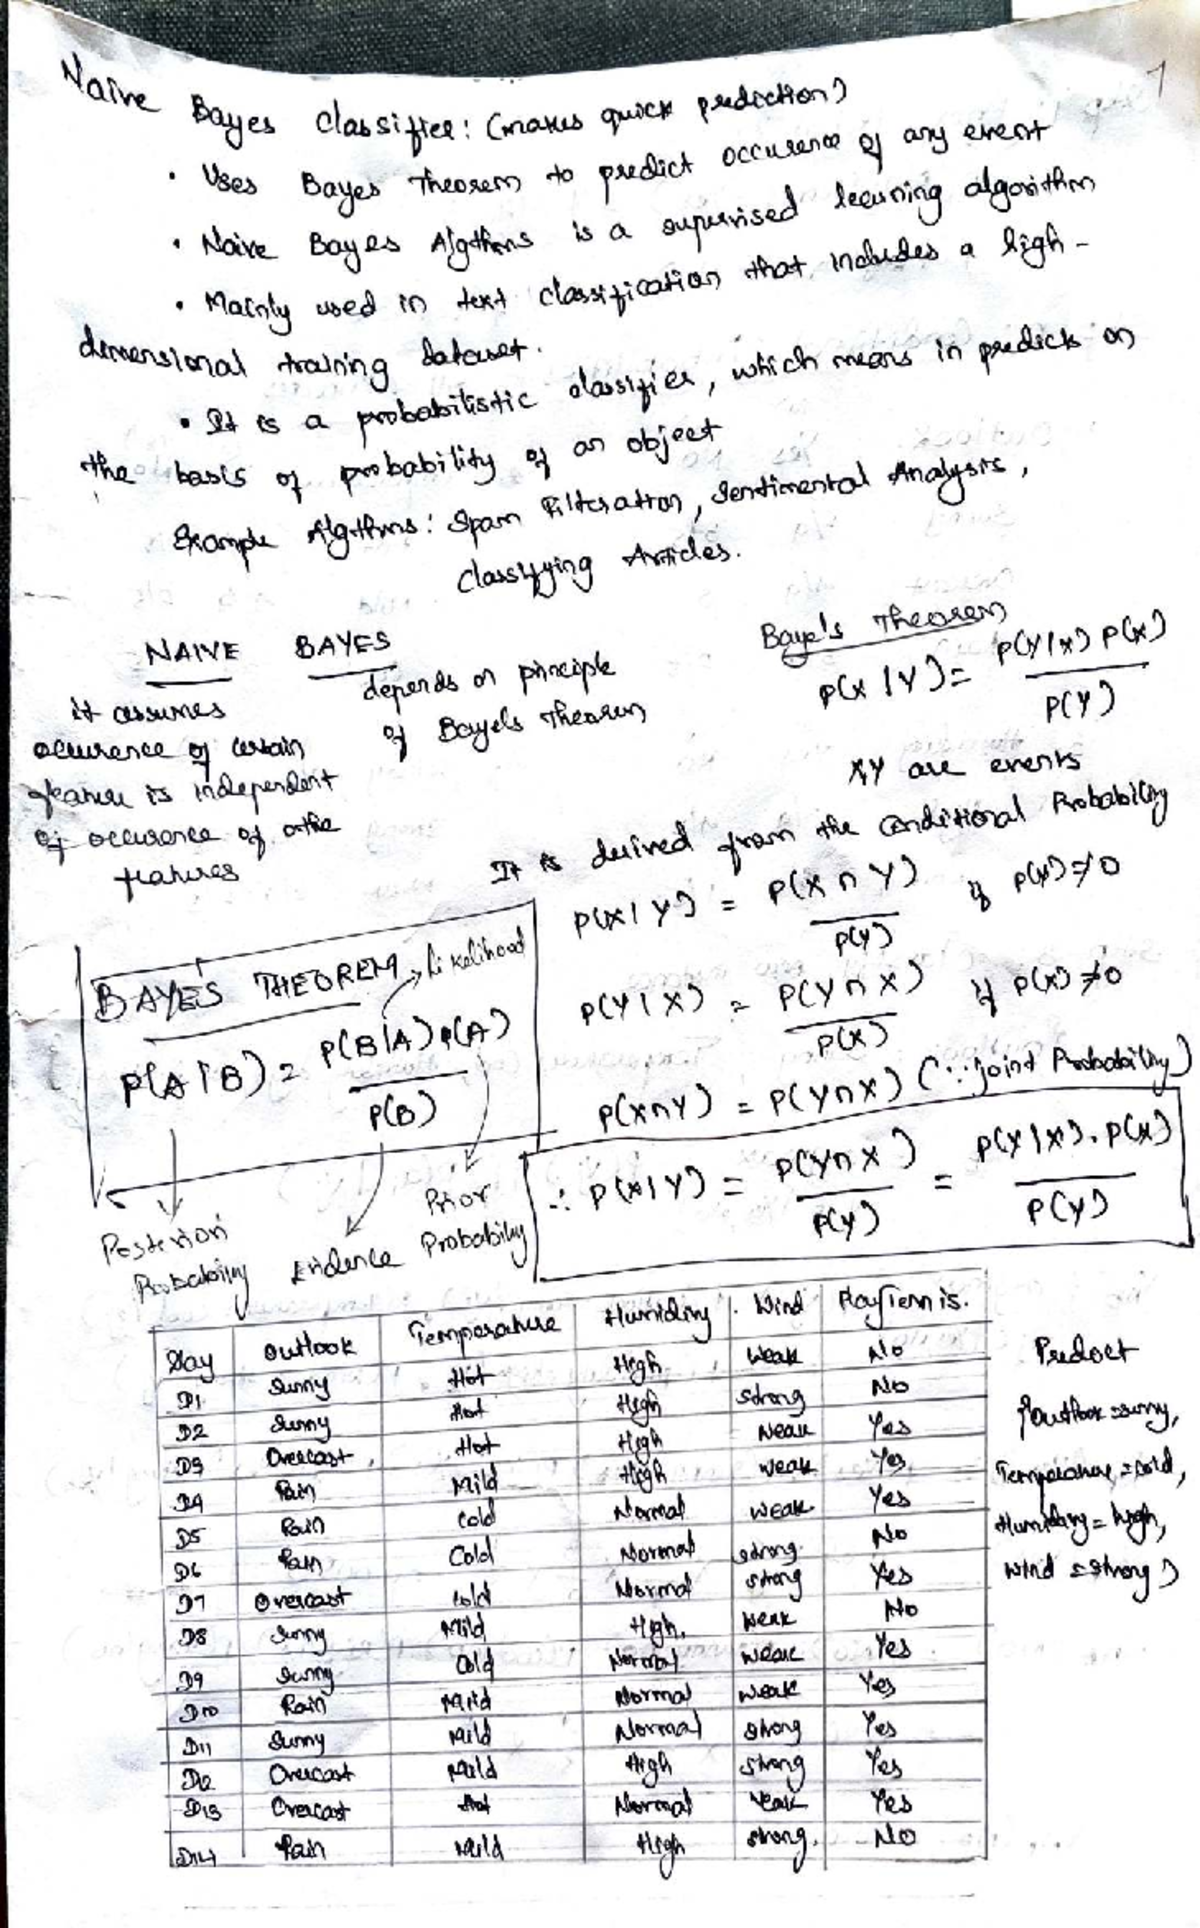 7
Naive Bayes Classifier: (makes quick prediction)
• Uses Bayes Theorem to predict occurence of any event
• Naive Bayes Algthms is a supervised learning algorithm
• Mainly used in text classification that includes a high-
dimensional training dataset.
• It is a probabilistic classifier, which means in predicts on
the basis of probability of an object
Example Algthms: Spam Filteration, Sentimental Analysis,
Classifying Articles.
NAIVE BAYES
it assumes
occurence of certain
feature is independent
of occurence of othe
features
depends on principle
of Baye's Theorem
Baye's Theorem
P(X|Y) = P(Y|X) P(X) / P(Y)
X,Y are events
It is derived from the Conditional Probability
P(X|Y) = P(X∩Y) / P(Y) if P(Y)≠0
P(Y|X) = P(Y∩X) / P(X) if P(X)≠0
P(X∩Y) = P(Y∩X) (∵ joint Probability)
∴ P(X|Y) = P(Y∩X) / P(Y) = P(Y|X). P(X) / P(Y)
BAYE'S THEOREM
Likelihood
P(A|B) = P(B|A) P(A) / P(B)
Posteriori Probability
Evidence
Prior Probability
Day Outlook Temperature Humidity Wind PlayTennis.
D1 Sunny Hot High Weak No
D2 Sunny Hot High strong No
D3 Overcast Hot High Weak Yes
D4 Rain Mild High weak Yes
D5 Rain Cold Normal weak Yes
D6 Rain Cold Normal strong No
D7 Overcast Cold Normal strong Yes
D8 Sunny Mild High. weak No
D9 Sunny Cold Normal weak Yes
D10 Rain Mild Normal weak Yes
D11 Sunny Mild Normal strong Yes
D12 Overcast Mild High strong Yes
D13 Overcast Hot Normal weak Yes
D14 Rain Mild High strong. No
Predict
(Outlook=sunny,
Temperature=cold,
Humidity=high,
wind=strong)